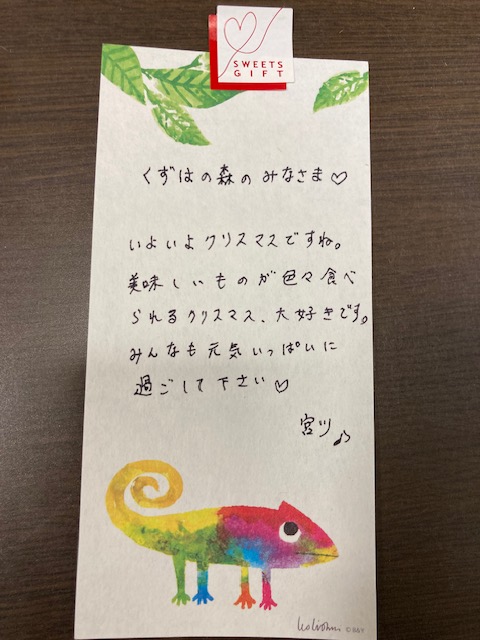 SWEETS
GIFT
くずはの森のみなさま♡
いよいよクリスマスですね。
美味しいものが色々食べ
られるクリスマス、大好きです。
みんなも元気いっぱいに
過ごして下さい♡
宮ツ♪